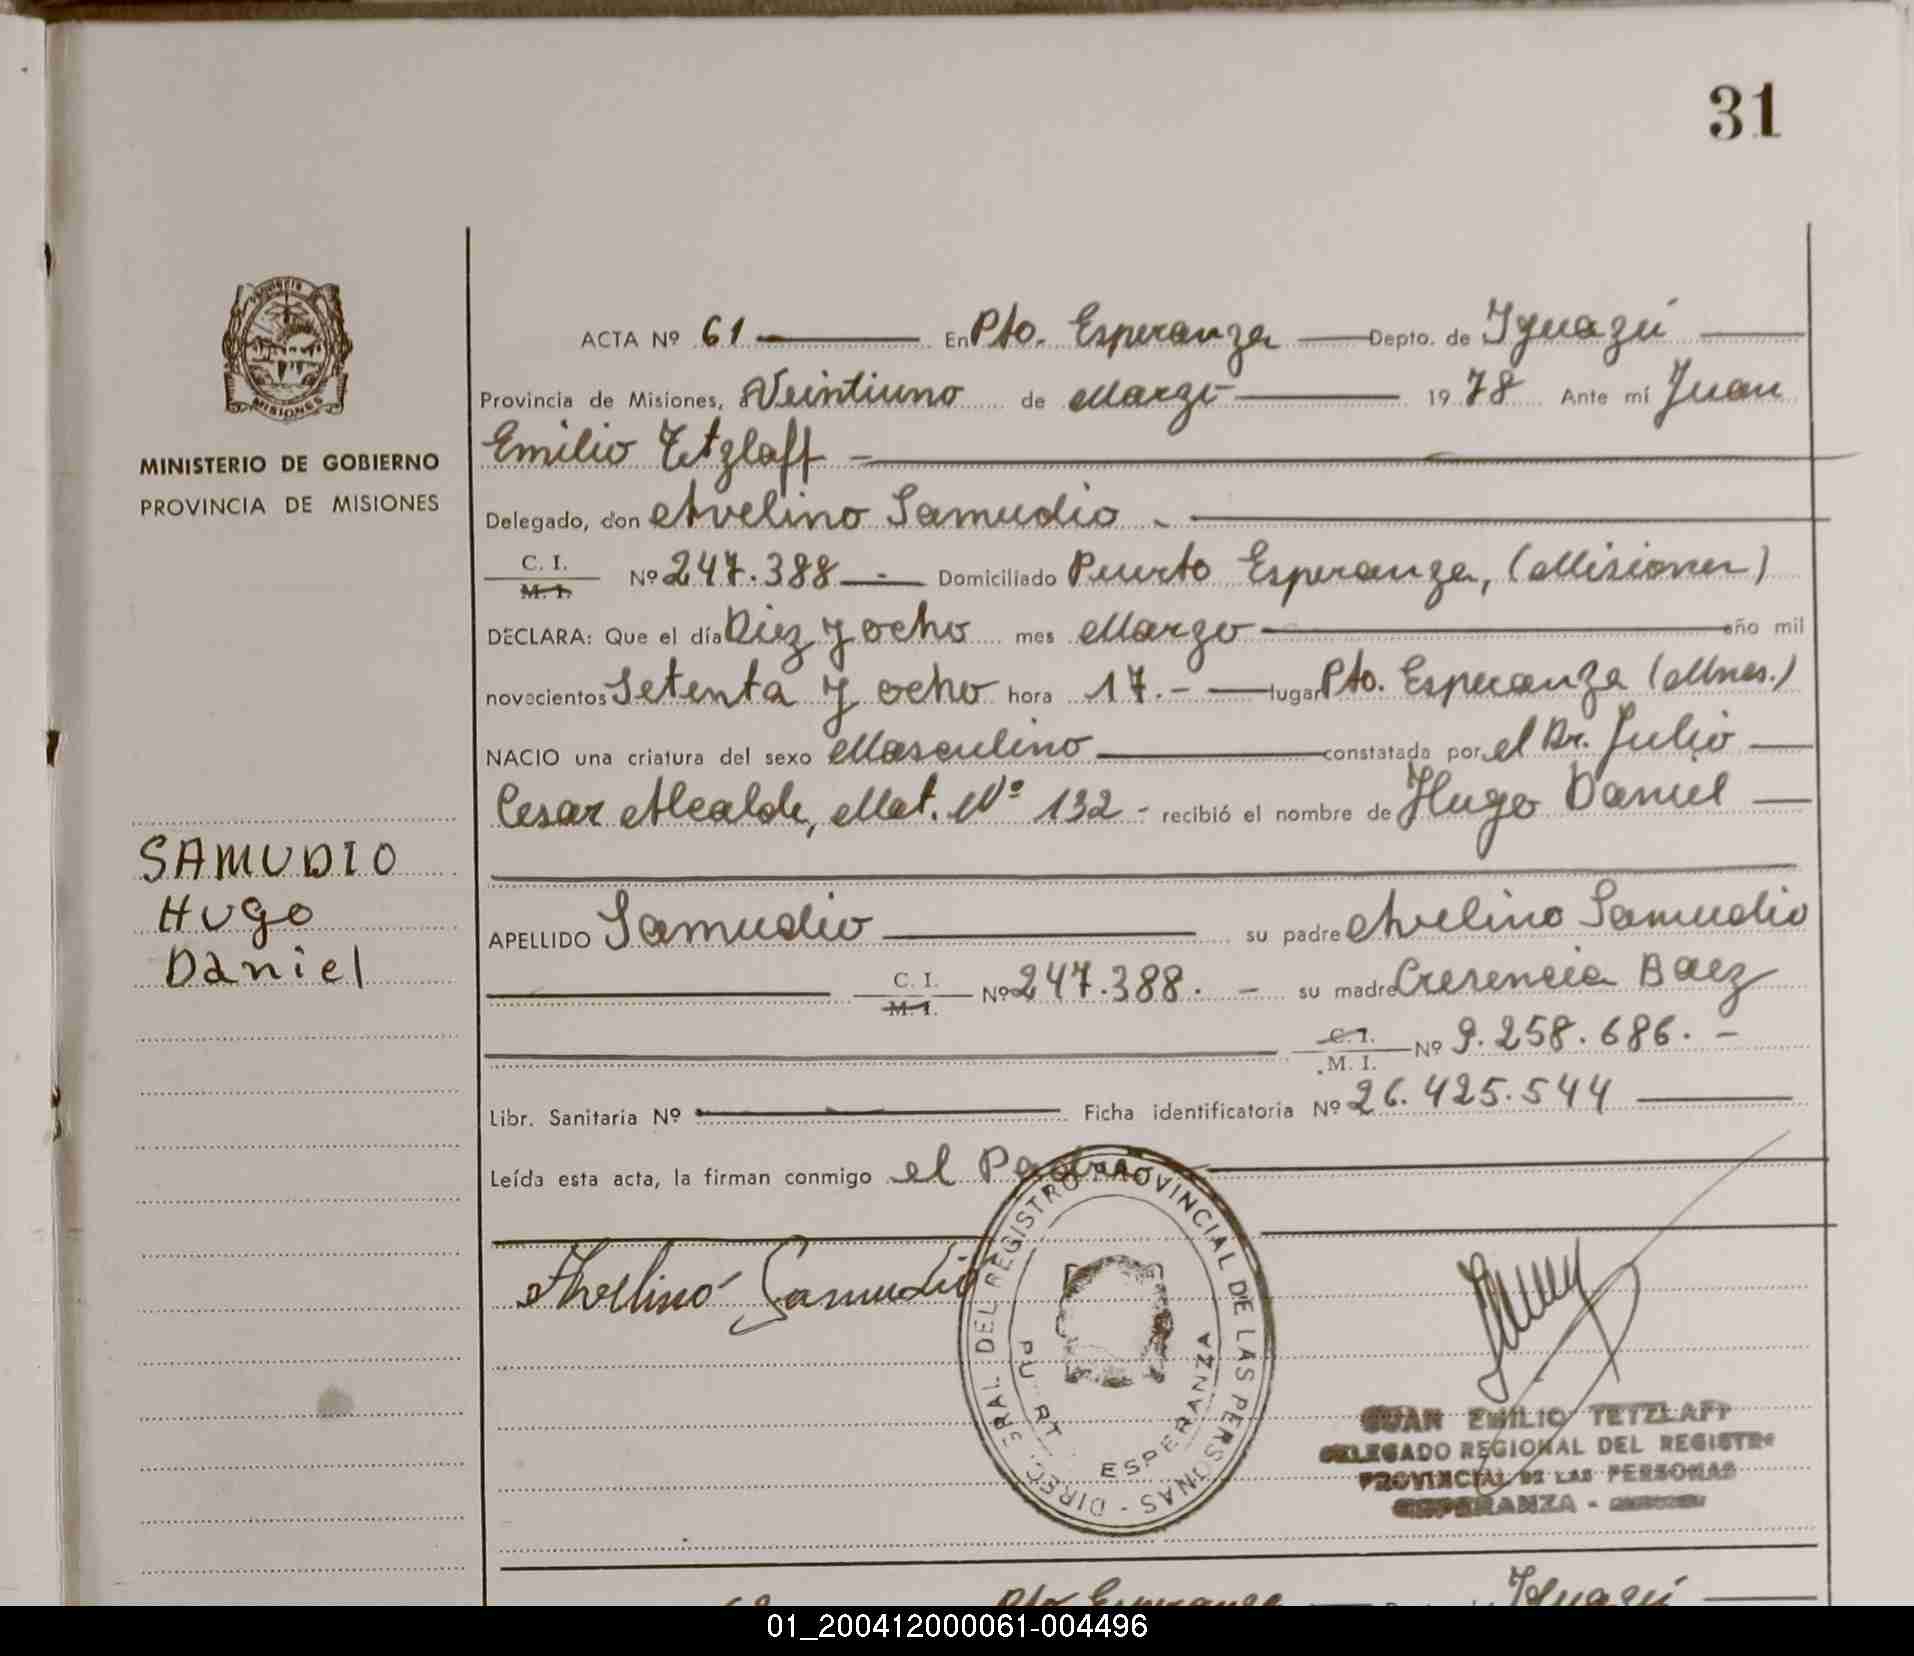 31
PROVINCIA
MISIONES
MINISTERIO DE GOBIERNO
PROVINCIA DE MISIONES
SAMUDIO
HUGO
Daniel
ACTA Nº 61 En Pto. Esperanza Depto. de Iguazú
Provincia de Misiones, a Veintiuno de Marzo 19 78 Ante mí Juan
Emilio Tetzlaff -
Delegado, don Avelino Samudio -
C. I.
M. I.
Nº 247.388 - Domiciliado Puerto Esperanza, (Misiones)
DECLARA: Que el día Diez y ocho mes Marzo año mil
novecientos Setenta y ocho hora 17.- lugar Pto. Esperanza (Mnes.)
NACIO una criatura del sexo Masculino constatada por el Dr. Julio
Cesar Alcalde, Mat. Nº 132 - recibió el nombre de Hugo Daniel
APELLIDO Samudio su padre Avelino Samudio
C. I.
M. I.
Nº 247.388. - su madre Cresencia Baez
C. I.
M. I.
Nº 9.258.686. -
Libr. Sanitaria Nº Ficha identificatoria Nº 26.425.544
Leída esta acta, la firman conmigo el Padre
Avelino Samudio
DIREC. GRAL DEL REGISTRO PROVINCIAL DE LAS PERSONAS -
PUERT ESPERANZA
JUAN EMILIO TETZLAFF
DELEGADO REGIONAL DEL REGISTRO
PROVINCIAL DE LAS PERSONAS
ESPERANZA -
62 Pto Esperanza Iguazú
01_200412000061-004496